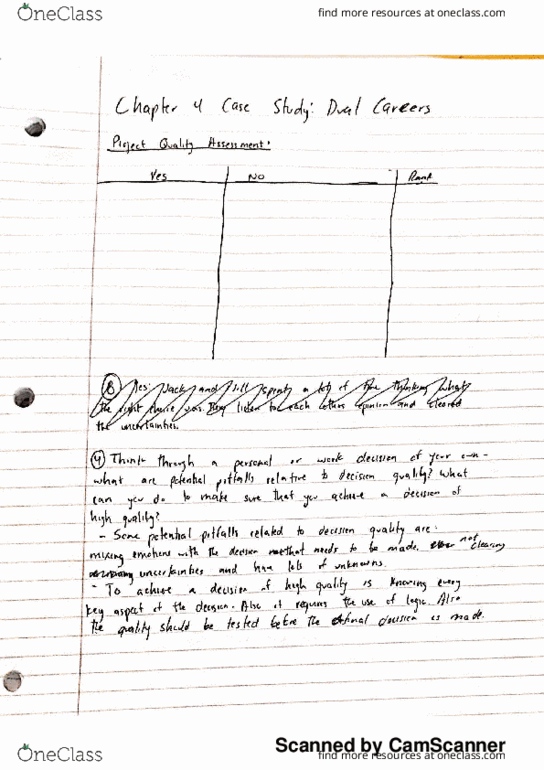 OneClass
find more resources at oneclass.com
Chapter 4 Case Study: Dual Careers
Project Quality Assessment:
Yes NO Rank
③ Yes: Jack and Jill spent a lot of time thinking what
the right choice was. They listen to each others opinion and cleared
the uncertainties.
④ Think through a personal or work decision of your own -
what are potential pitfalls relative to decision quality? What
can you do to make sure that you achieve a decision of
high quality?
- Some potential pitfalls related to decision quality are:
mixing emotions with the decision that needs to be made. not clearing
uncertainties and have lots of unknowns.
- To achieve a decision of high quality is knowing every
key aspect of the decision. Also it requires the use of logic. Also
the quality should be tested before the final decision is made.
Scanned by CamScanner
OneClass
find more resources at oneclass.com